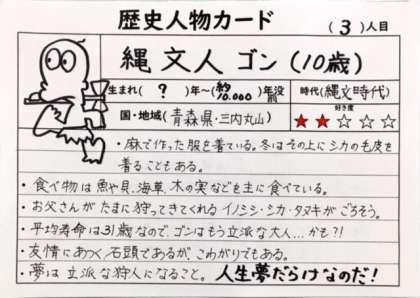 歴史人物カード
(3)人目
縄文人 ゴン (10歳)
生まれ(?)年~(約10,000)年没
時代(縄文時代)
国・地域(青森県・三内丸山)
好き度
★★☆☆☆
・麻で作った服を着ている。冬はその上にシカの毛皮を
着ることもある。
・食べ物は魚や貝、海草、木の実などを主に食べている。
・お父さんがたまに狩ってきてくれるイノシシ・シカ・タヌキがごちそう。
・平均寿命は31歳なので、ゴンはもう立派な大人…かも?!
・友情にあつく石頭であるが、こわがりでもある。
・夢は立派な狩人になること。人生夢だらけなのだ!